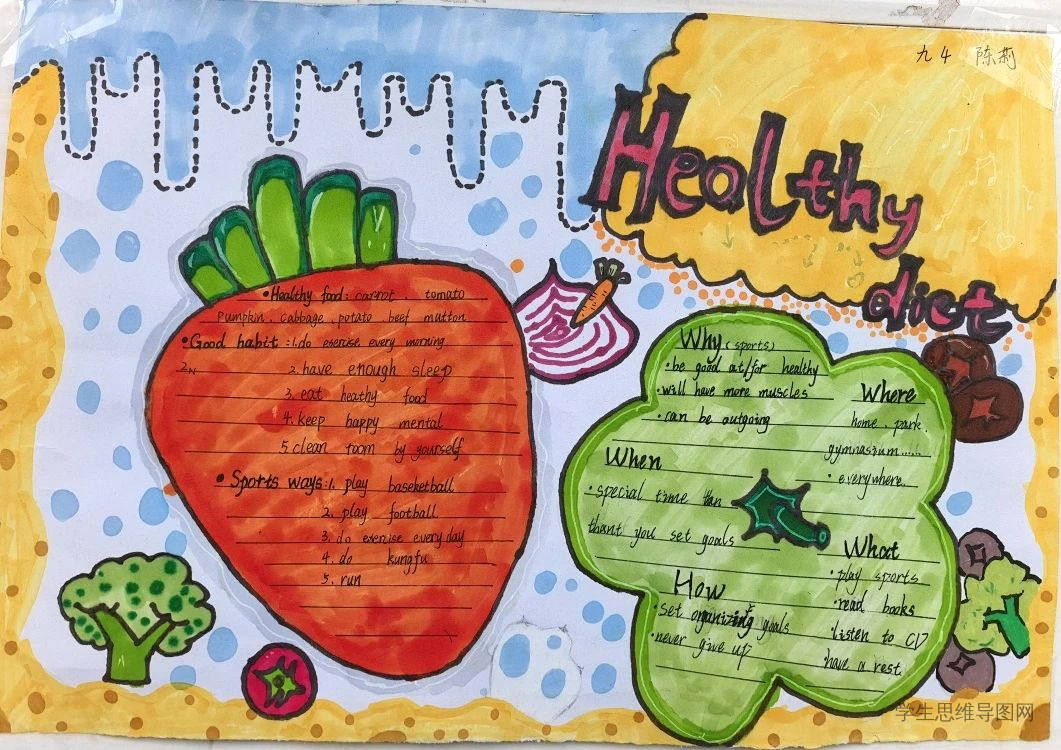 九4 陈莉
Healthy
diet
•Healthy food: carrot . tomato
Pumpkin. cabbage .potato .beef mutton
•Good habit :1.do exercise every morning.
2. have enough sleep
3. eat heathy food
4. keep happy mental
5 clean room by yourself
•Sports ways:1. play baseketball
2. play football
3. do exercise every day
4. do kungfu
5. run
Why (sports)
•be good at/for healthy
•will have more muscles
•can be outgoing
Where
home. park.
gymnasium......
•everywhere.
When
•special time
thant you set goals
What
•play sports
•read books
•listen to CD
have a rest.
How
•set organizing goals
•never give up
学生思维导图网